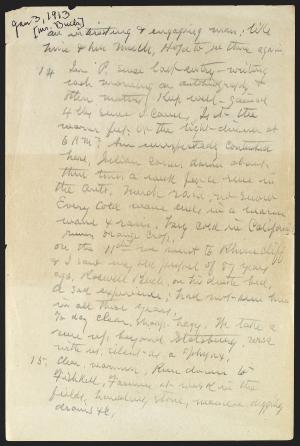 Jan 3, 1913
[Mrs. Burch]
an interesting & engaging man; like
him & her much. Hope to see them again
14 Jan'y. since last entry - writing
each morning on autobiography &
other matter. Keep well - gained
4 lbs since I came. Is it the
warm feet, or the light-dinner at
6 P.M.? Am unexpectedly contented
here. Julian comes down about
three times a week
the auto. Much rain, no snow.
Every cold wave ends in a warm
wave & rain. Very cold in California,
ruins orange crop.
On the 11th we went to Rhinecliff
& I saw my old pupil of 57 years
ago, on his death bed,
a sad experience; had not seen him
in all those years.
To day clear, sharp, hazy. We take a
run up beyond Staatsburg,
with us, silent as a sphynx.
15. Clear, warmer, Run down to
Fishkill, Farmers at work in the
fields, hauling stone, manure, digging
drains &c.